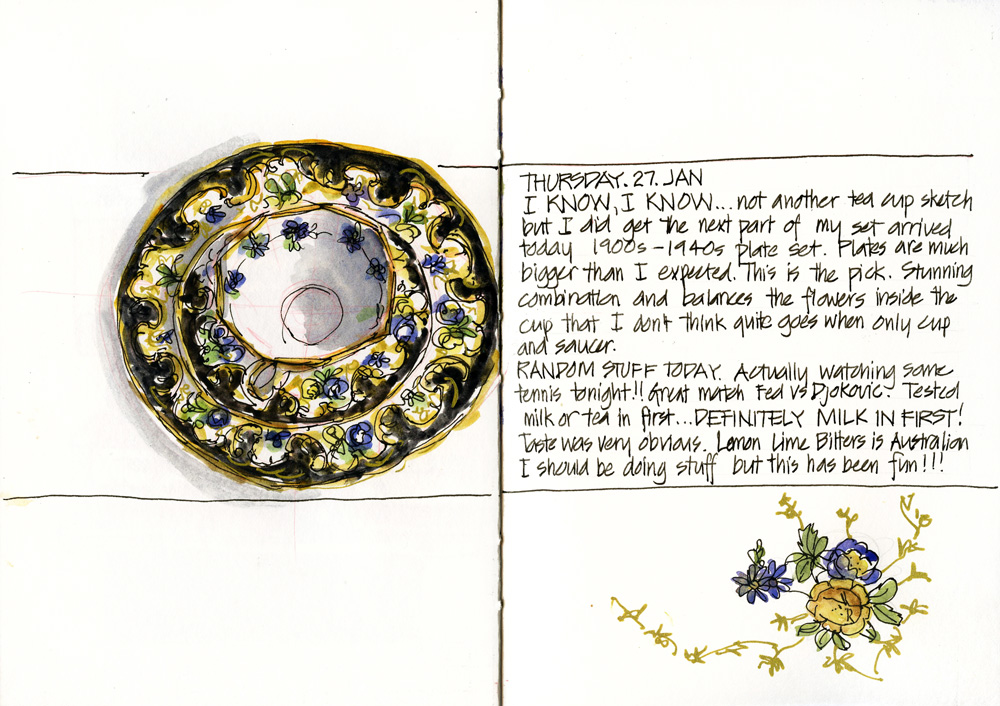 THURSDAY. 27. JAN
I KNOW, I KNOW... not another tea cup sketch
but I did get the next part of my set arrived
today 1900s - 1940s plate set. Plates are much
bigger than I expected. This is the pick. Stunning
combination and balances the flowers inside the
cup that I don't think quite goes when only cup
and saucer.
RANDOM STUFF TODAY. Actually watching some
tennis tonight!! Great match Fed vs Djokovic. Tested
milk or tea in first... DEFINITELY MILK IN FIRST!
Taste was very obvious. Lemon Lime Bitters is Australian
I should be doing stuff but this has been fun!!!